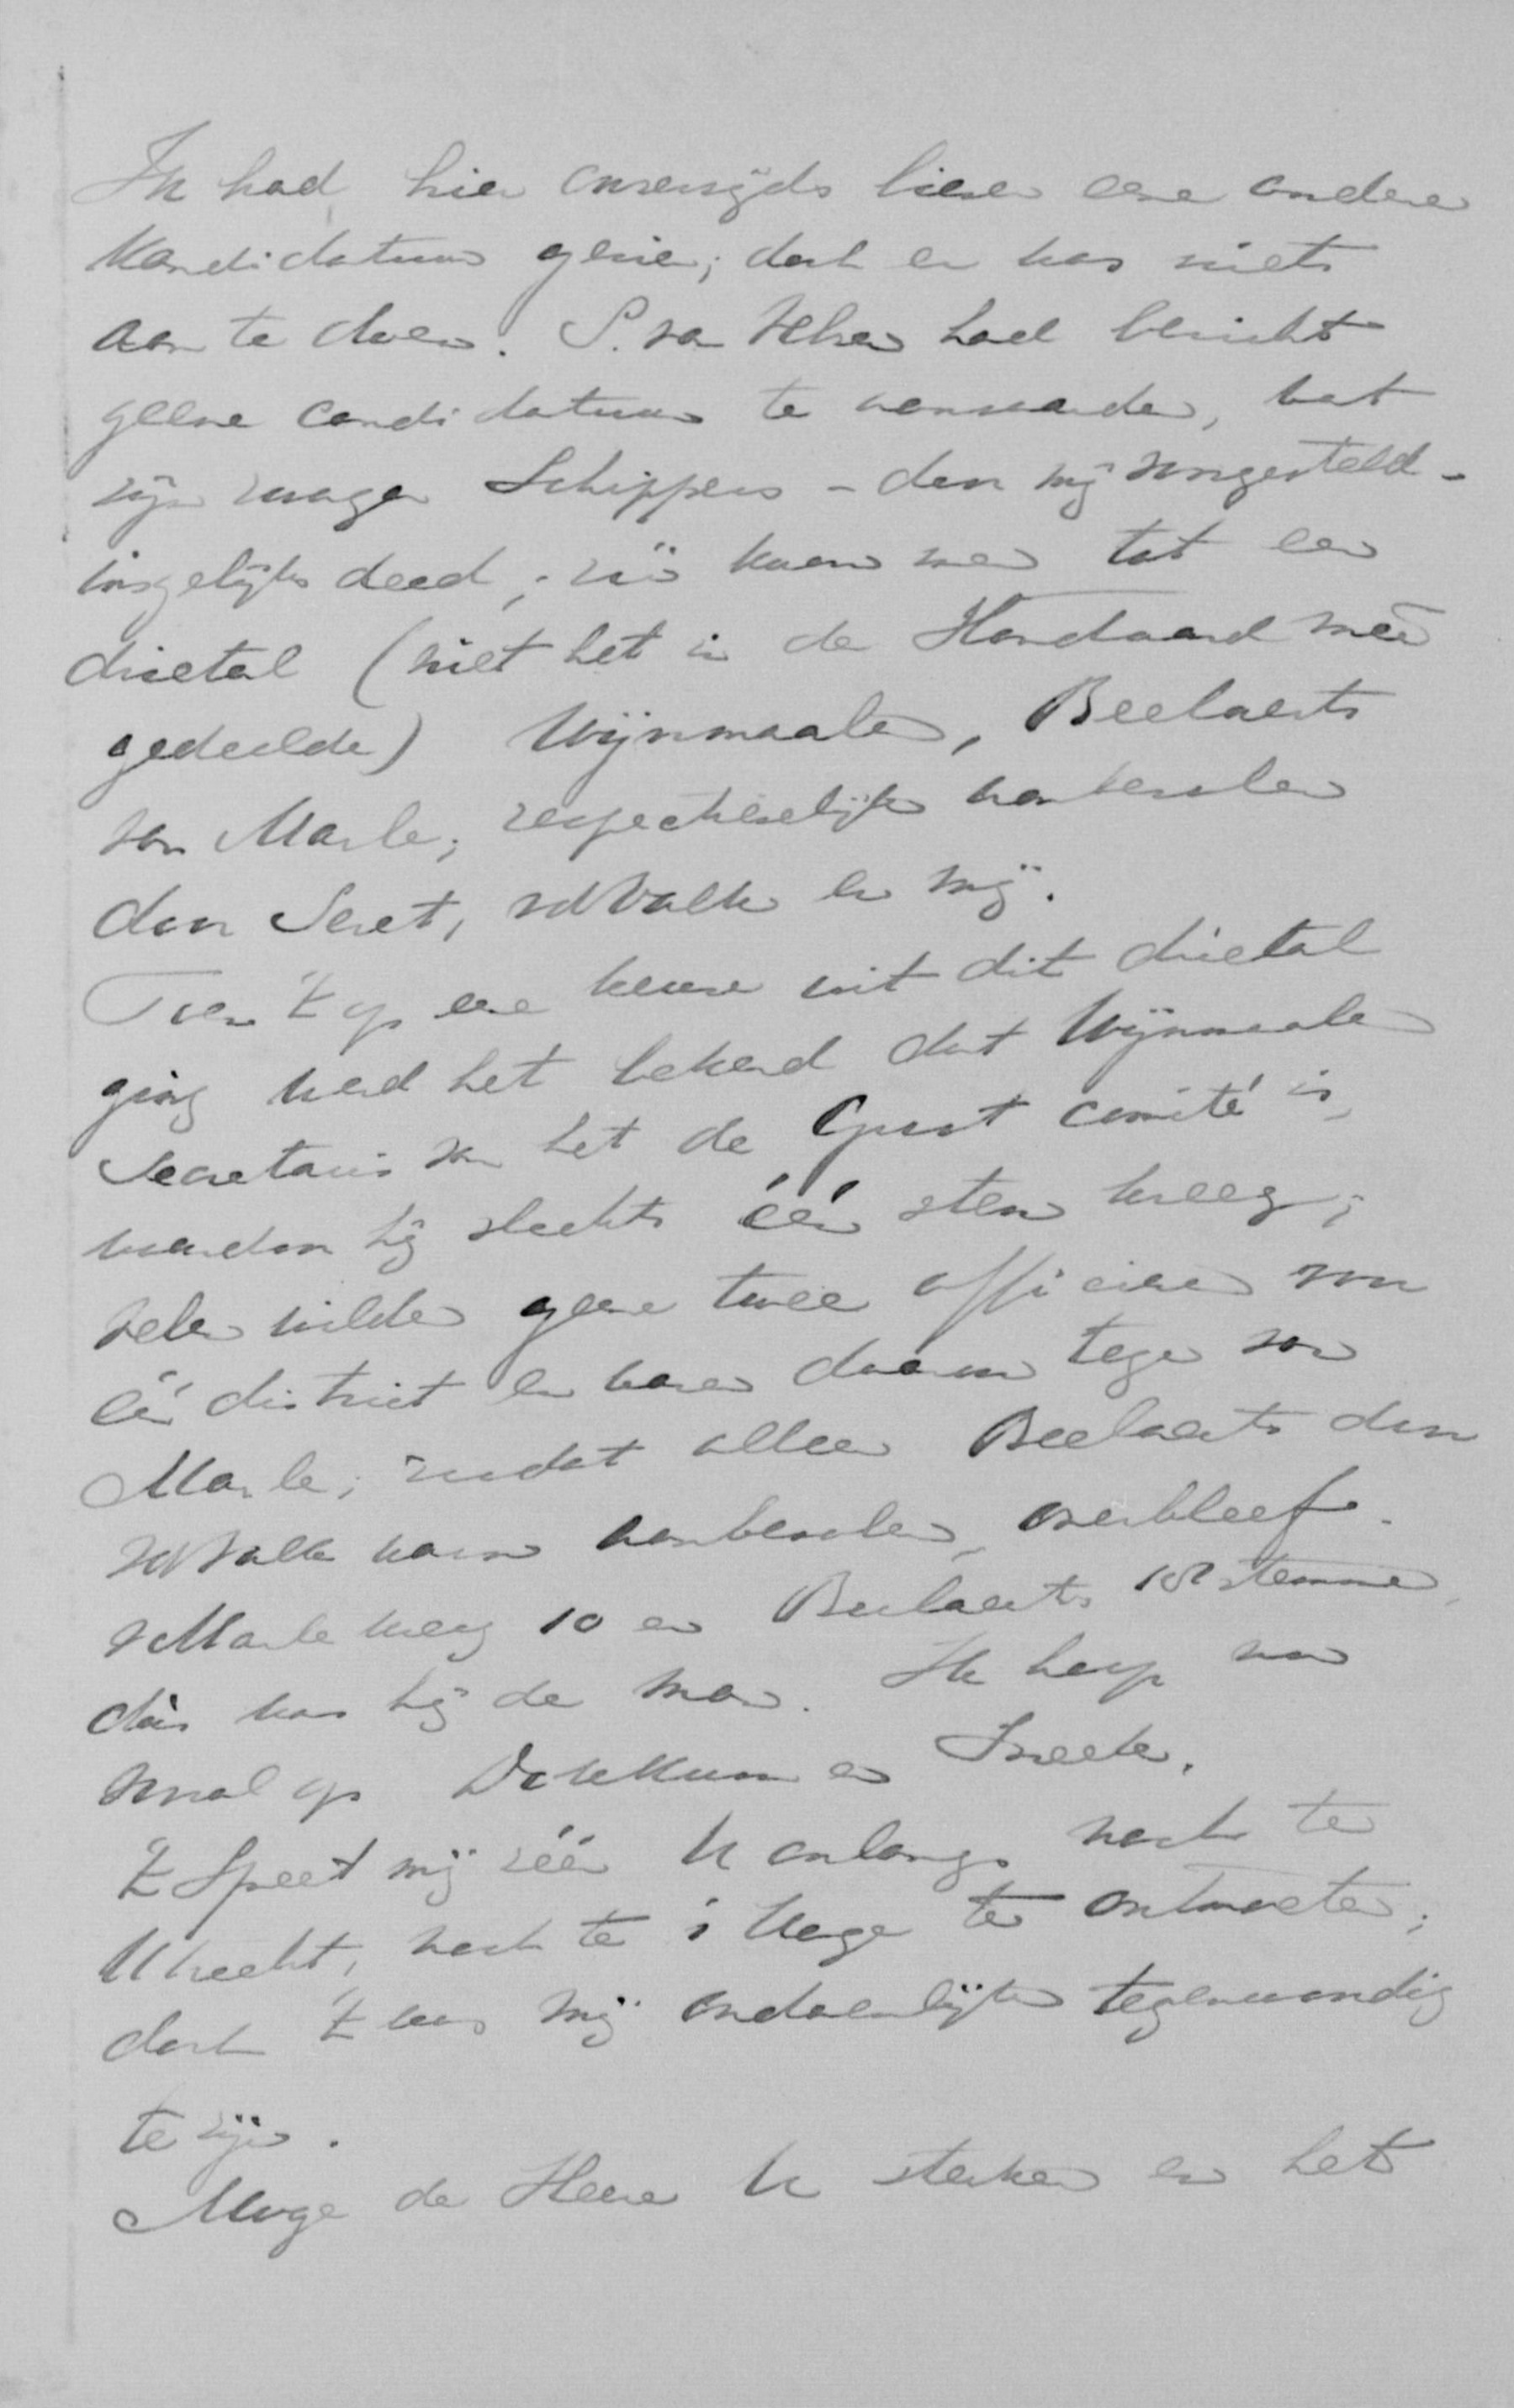 Ik had hier onzerzijds liever eene andere
kandidatuur gezien; doch er was niets
aan te doen. S. van Velzen had bericht
geene candidatuur te aanvaarden, wat
zijn zwager Schippers – door mij voorgesteld –
insgelijks deed; zóó kwam men tot een
drietal (niet het in de Standaard mee
gedeelde) Wijnmaalen, Beelaerts
van Marle; respectievelijk aanbevolen
door Seret, vdValk en mij.
Toen 't op eene keuze uit dit drietal
ging werd het bekend dat Wijnmaalen
Secretaris van het de Geest comité is,
waardoor hij slechts één stem kreeg;
velen wilden geen twee officieren voor
één district en waren daarom tegen van
Marle; zoodat alleen Beelaerts door
vdValk warm aanbevolen, overbleef.
vMarle kreeg 10 en Beelaerts stemmen,
dús was hij de man. Ik hoop nu
vooral op Dokkum en Sneek.
't Speet mij zéér U onlangs noch te
Utrecht, noch te 's Hage te ontmoeten;
doch 't was mij ondoenlijk tegenwoordig
te zijn.
Moge de Heere U sterken en het